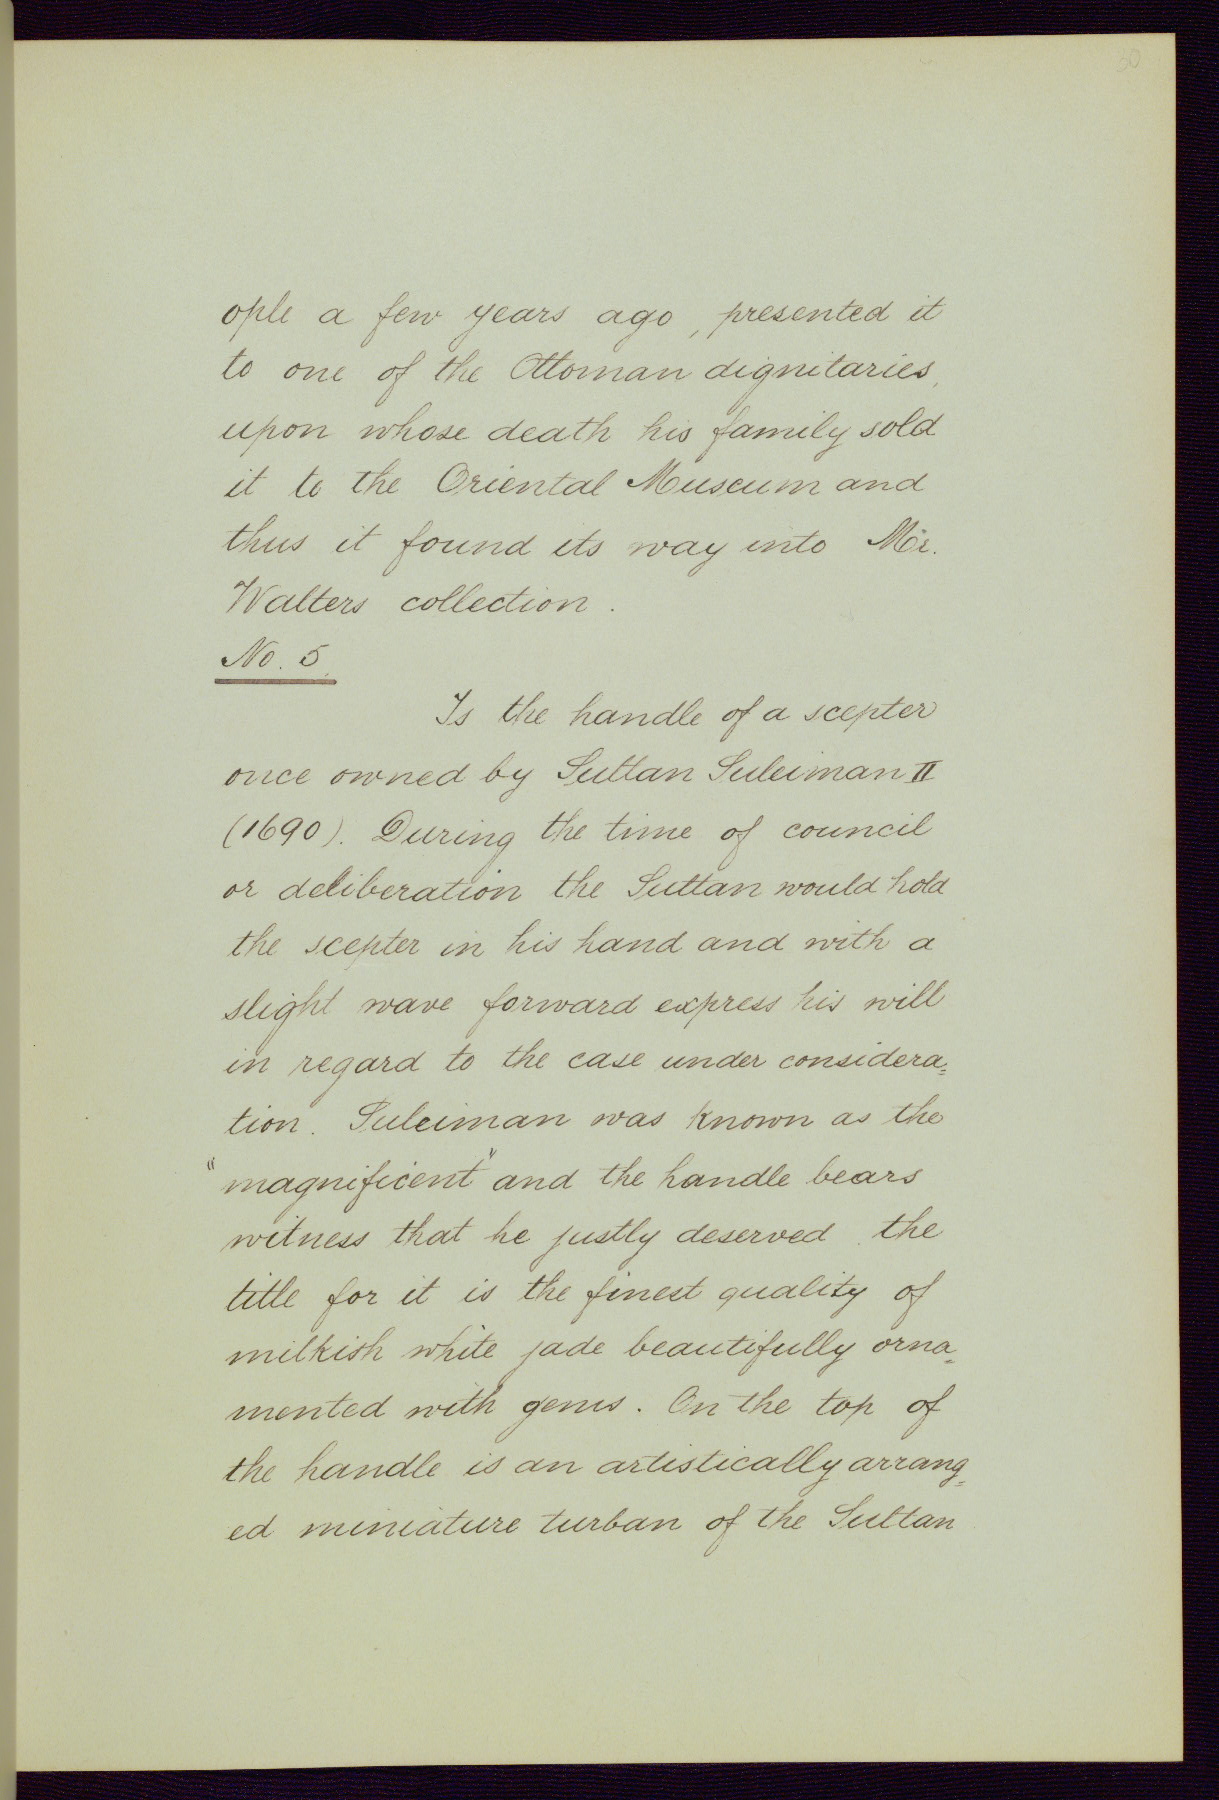 ople a few years ago, presented it
to one of the Ottoman dignitaries,
upon whose death his family sold
it to the Oriental Museum and
thus it found its way into Mr.
Walters collection.
No. 5.
Is the handle of a scepter
once owned by Sultan Suleiman II
(1690). During the time of council
or deliberation the Sultan would hold
the scepter in his hand and with a
slight wave forward express his will
in regard to the case under considera=
tion. Suleiman was known as the
"magnificent" and the handle bears
witness that he justly deserved the
title for it is the finest quality of
milkish white jade beautifully orna=
mented with gems. On the top of
the handle is an artistically arrang=
ed miniature turban of the Sultan